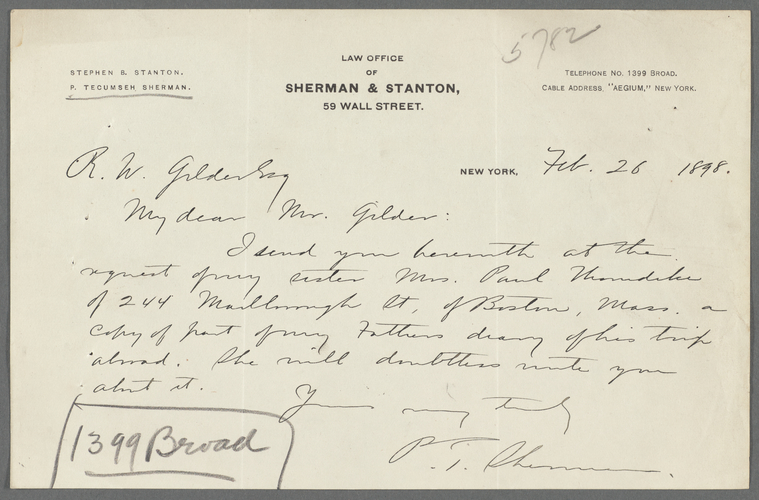 5782
LAW OFFICE
OF
SHERMAN & STANTON,
59 WALL STREET.
STEPHEN B. STANTON.
P. TECUMSEH SHERMAN.
TELEPHONE NO. 1399 BROAD.
CABLE ADDRESS, "AEGIUM," NEW YORK.
NEW YORK, Feb. 26 1898.
R. W. Gilder Esq
My dear Mr. Gilder:
I send you herewith at the
request of my sister Mrs. Paul Thorndike
of 244 Marlborough St, of Boston, Mass. a
copy of part of my Fathers diary of his trip
abroad. She will doubtless write you
about it.
Yours very truly
P. T. Sherman.
1399 Broad